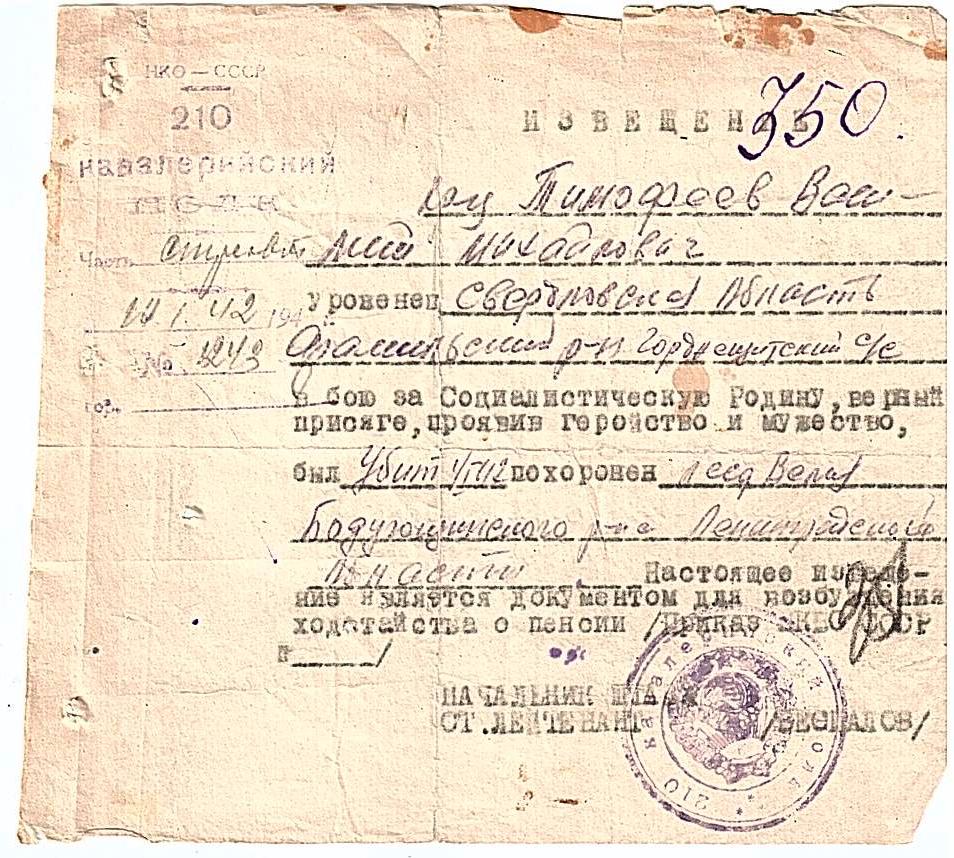 НКО — СССР
210
кавалерийский
полк
Часть
№ 1243
ИЗВЕЩЕНИЕ
350.
Тимофеев Васи-
лий Михайлович
уроженец Свердловская область
р-н с/с
в бою за Социалистическую Родину, верный
присяге, проявив геройство и мужество,
был убит похоронен
р-на Ленинградской
области. Настоящее извеще-
ние является документом для возбуждения
ходотайства о пенсии /Приказ НКО СССР
№ /
НАЧАЛЬНИК ШТАБА
СТ. ЛЕЙТЕНАНТ /БЕСПАЛОВ/
210 кавалерийский полк